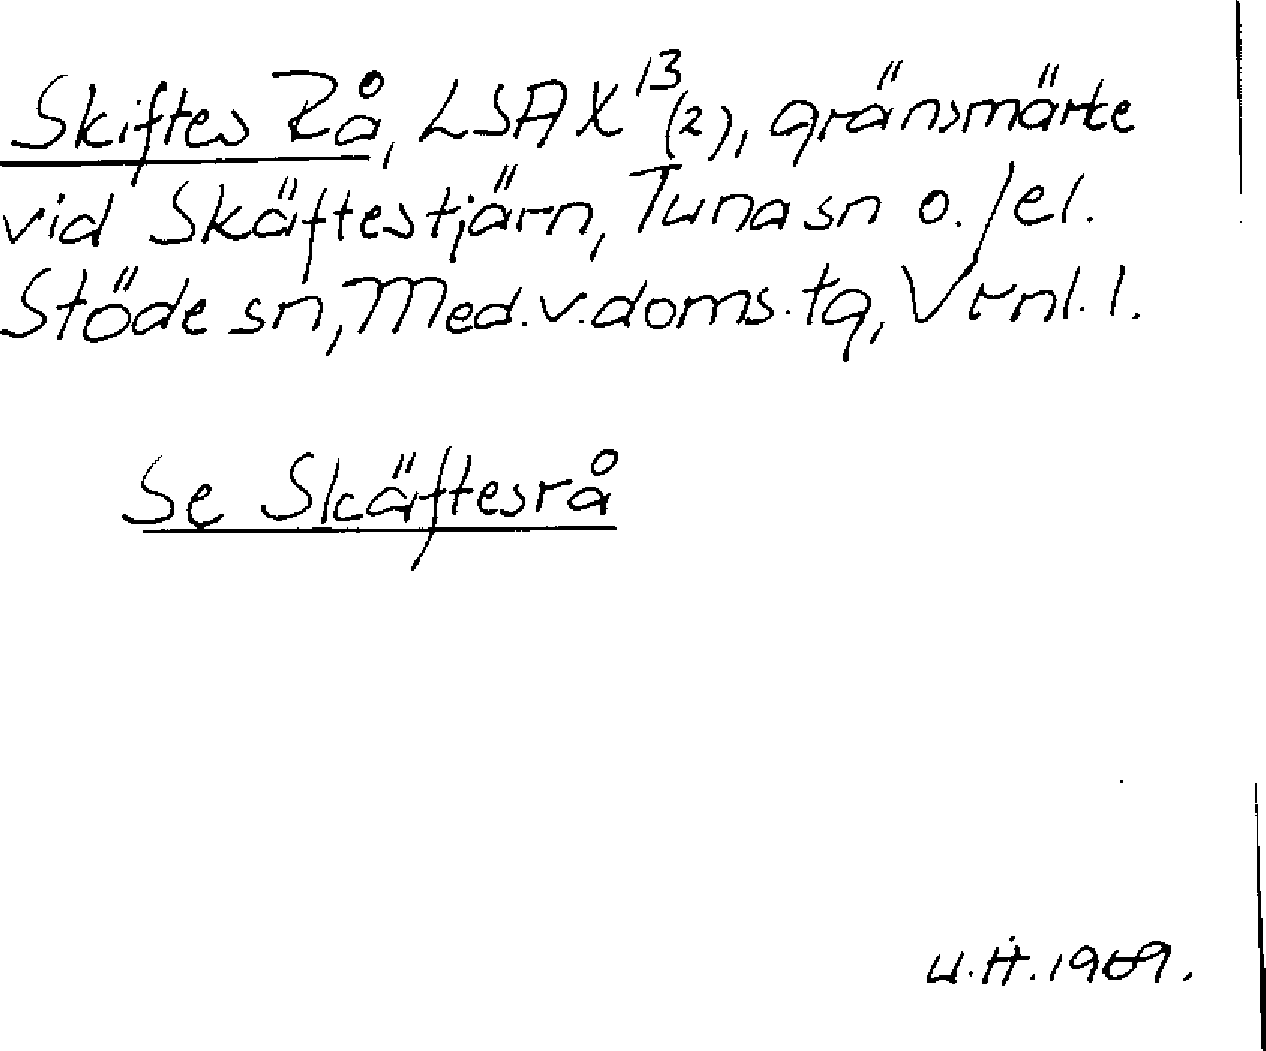 Skiftes Rå, LSA X 13 (2), gränsmärke
vid Skäftestjärn, Tuna sn o./el.
Stöde sn, Med.v.doms.tg, Vrnl. l.
Se Skäftesrå
U.H. 1969.